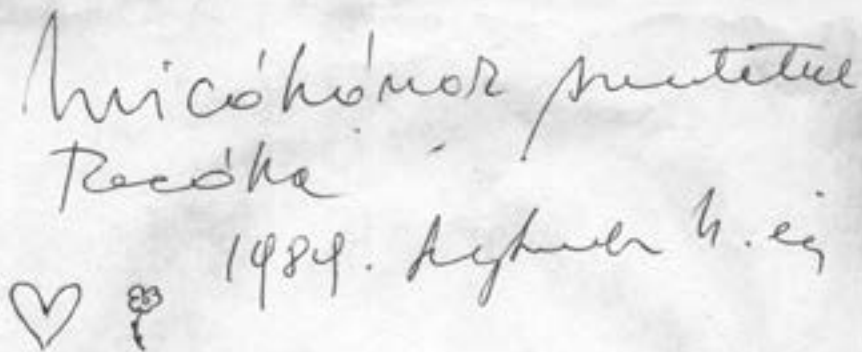 Micókámok szeretettel
Recóka
1989. szeptember 4. én